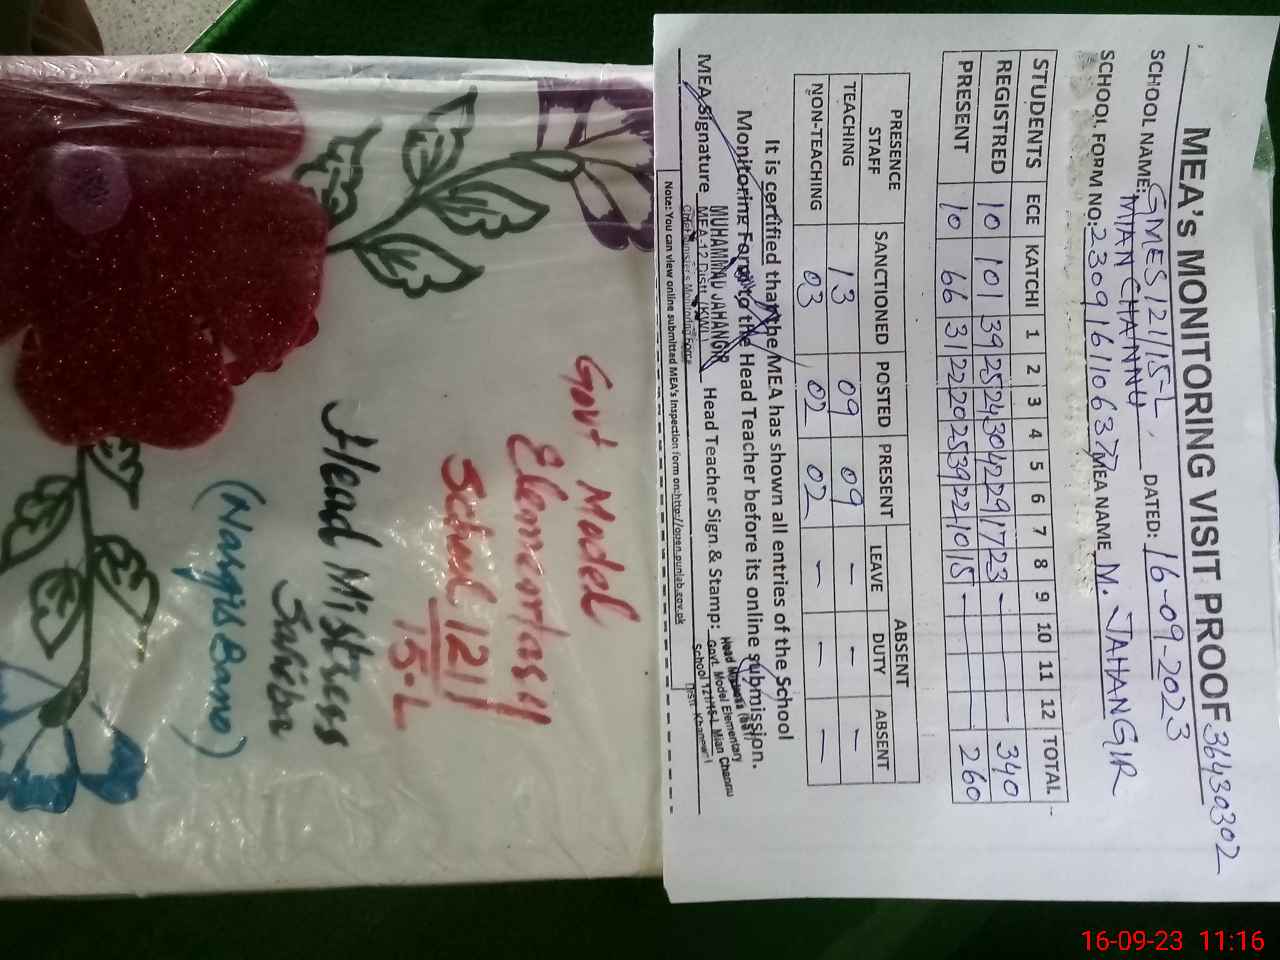 MEA's MONITORING VISIT PROOF 36430302
SCHOOL NAME: GMES 121/15-L, DATED: 16-09-2023
MIAN CHANNU
SCHOOL FORM NO: 2309161106377 MEA NAME M. JAHANGIR
STUDENTS ECE KATCHI 1 2 3 4 5 6 7 8 9 10 11 12 TOTAL
REGISTRED 10 101 39 25 24 30 42 29 17 23 - 340
PRESENT 10 66 31 22 20 25 39 22 10 15 - 260
PRESENCE STAFF SANCTIONED POSTED PRESENT ABSENT
LEAVE DUTY ABSENT
TEACHING 13 09 09 - - -
NON-TEACHING 03 02 02 - - -
It is certified that the MEA has shown all entries of the School
Monitoring Form to the Head Teacher before its online submission.
MEA Signature Head Teacher Sign & Stamp:
MUHAMMAD JAHANGIR
MEA-12 Distt. KWL
Chief Minister's Monitoring Force
Head Mistress
Govt. Model Elementary
School 121/15-L Mian Channu
Note: You can view online submitted MEA's inspection form on:http://open.punjab.gov.pk
Govt Model
Elementary
School 121/
15-L
Head Mistress
Sahiba
(Nargis Bano)
16-09-23 11:16